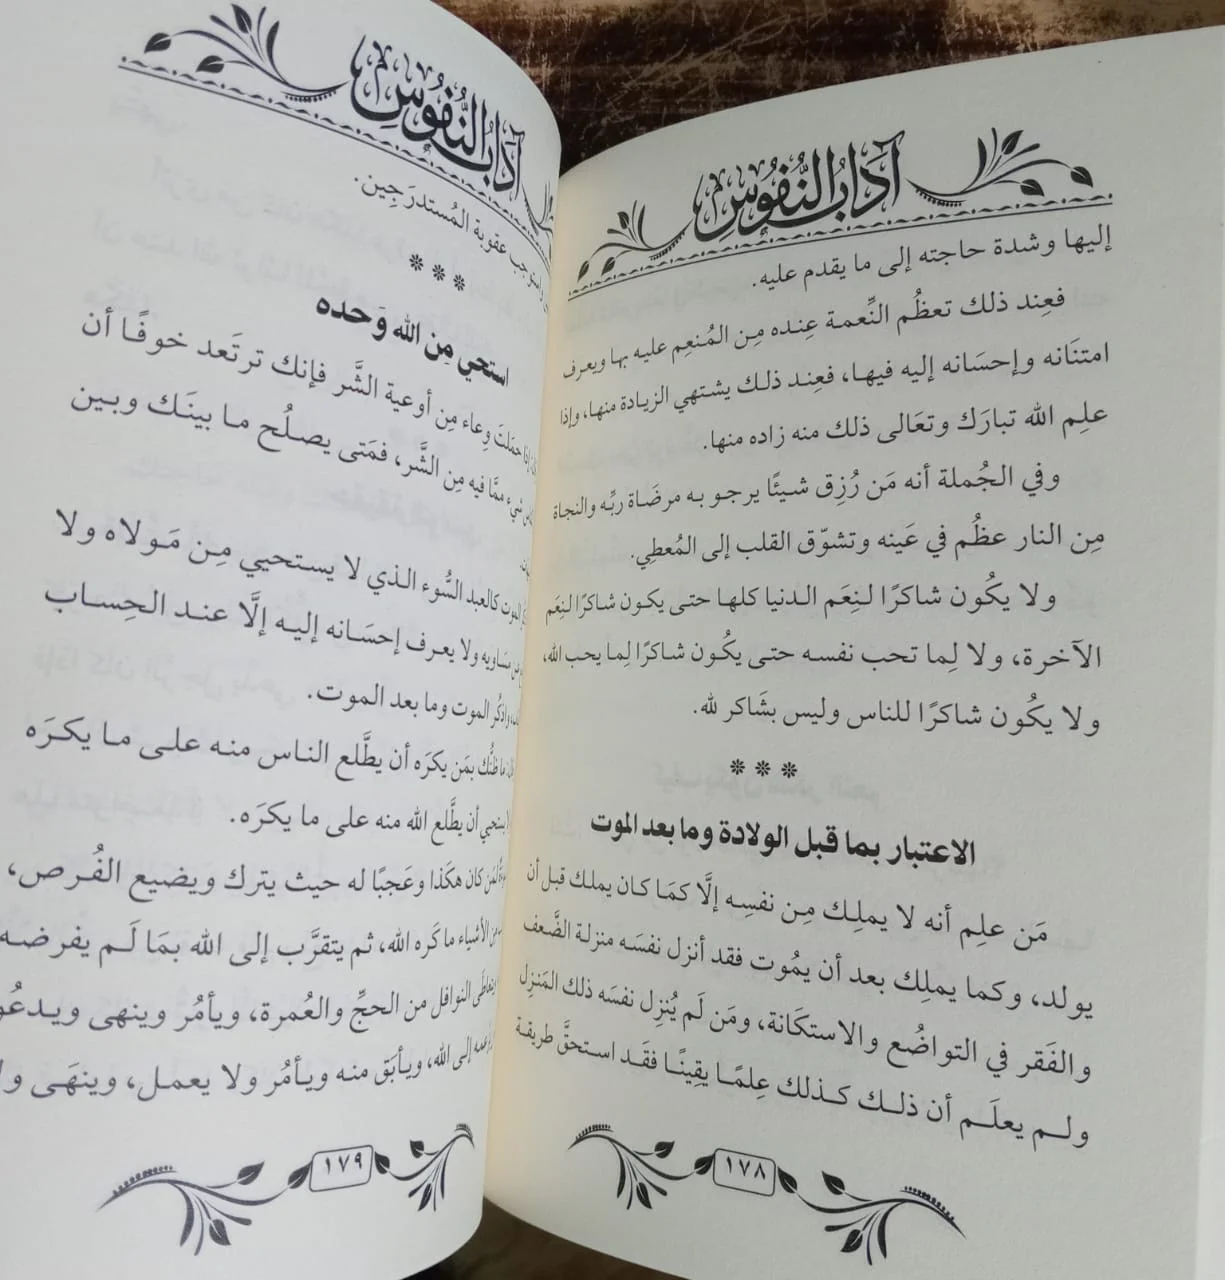 آدَابُ النُّفُوسِ
إليها وشدة حاجته إلى ما يقدم عليه.
فعِند ذلك تعظُم النِّعمة عِنده مِن المُنعِم عليه بها ويعرف
امتنَانه وإحسَانه إليه فيهـا، فعِنـد ذلـك يشـتهي الزيـادة منهـا، وإذا
علِم الله تبارَك وتعَالى ذلك منه زاده منها.
وفي الجُملة أنه مَن رُزِق شـيئًا يرجـو بـه مرضَاة ربِّه والنجاة
مِن النار عظُم في عَينه وتشوّق القلب إلى المُعطِي.
ولا يكُون شاكرًا لنِعَم الدنيا كلها حتى يكون شاكرًا لنِعَم
الآخرة، ولا لِما تحب نفسه حتى يكُون شاكرًا لِما يحب الله،
ولا يكُون شاكرًا للناس وليس بشَاكر لله.
***
الاعتبار بما قبل الولادة وما بعد الموت
مَن علِم أنه لا يملِـك مِـن نفسِـه إلَّا كمَا كان يملك قبل أن
يولد، وكما يملِك بعد أن يمُوت فقد أنزل نفسَه منزلة الضَّعف
والفَقر في التواضُع والاستكَانة، ومَن لَم يُنزِل نفسَه ذلك المَنزِل
ولـم يعلَـم أن ذلـك كـذلك عِلمًـا يقِينًـا فقَـد استحقَّ طريقـة
١٧٨
آدَابُ النُّفُوسِ
واستوجب عقوبة المُستدرَجِين.
***
استحي مِن الله وَحده
إذا حمَلتَ وِعاء مِن أوعية الشَّر فإنك ترتَعد خوفًا أن
شيء ممَّا فيه مِن الشَّر، فمَتى يصلُح مـا بينَـك وبـين
الموت كالعبد السُّوء الـذي لا يسـتحيي مِـن مَـولاه ولا
مسَاويه ولا يعرف إحسَانه إليـه إلَّا عنـد الحِسـاب
واذكُر الموت وما بعد الموت.
ما ظنُّك بمَن يكرَه أن يطَّلع النـاس منـه علـى مـا يكـرَه
يستحيي أن يطَّلع الله منه على ما يكرَه.
كان هكَذا وعَجبًا له حيث يترك ويضيع الفُـرص،
الأشياء ما كَره الله، ثم يتقرَّب إلى الله بمَا لَـم يفرضـه
النوافل من الحجِّ والعُمرة، ويأمُر وينهى ويـدعُو
إلى الله، ويأبَق منـه ويـأمُر ولا يعمـل، وينهَـى
١٧٩